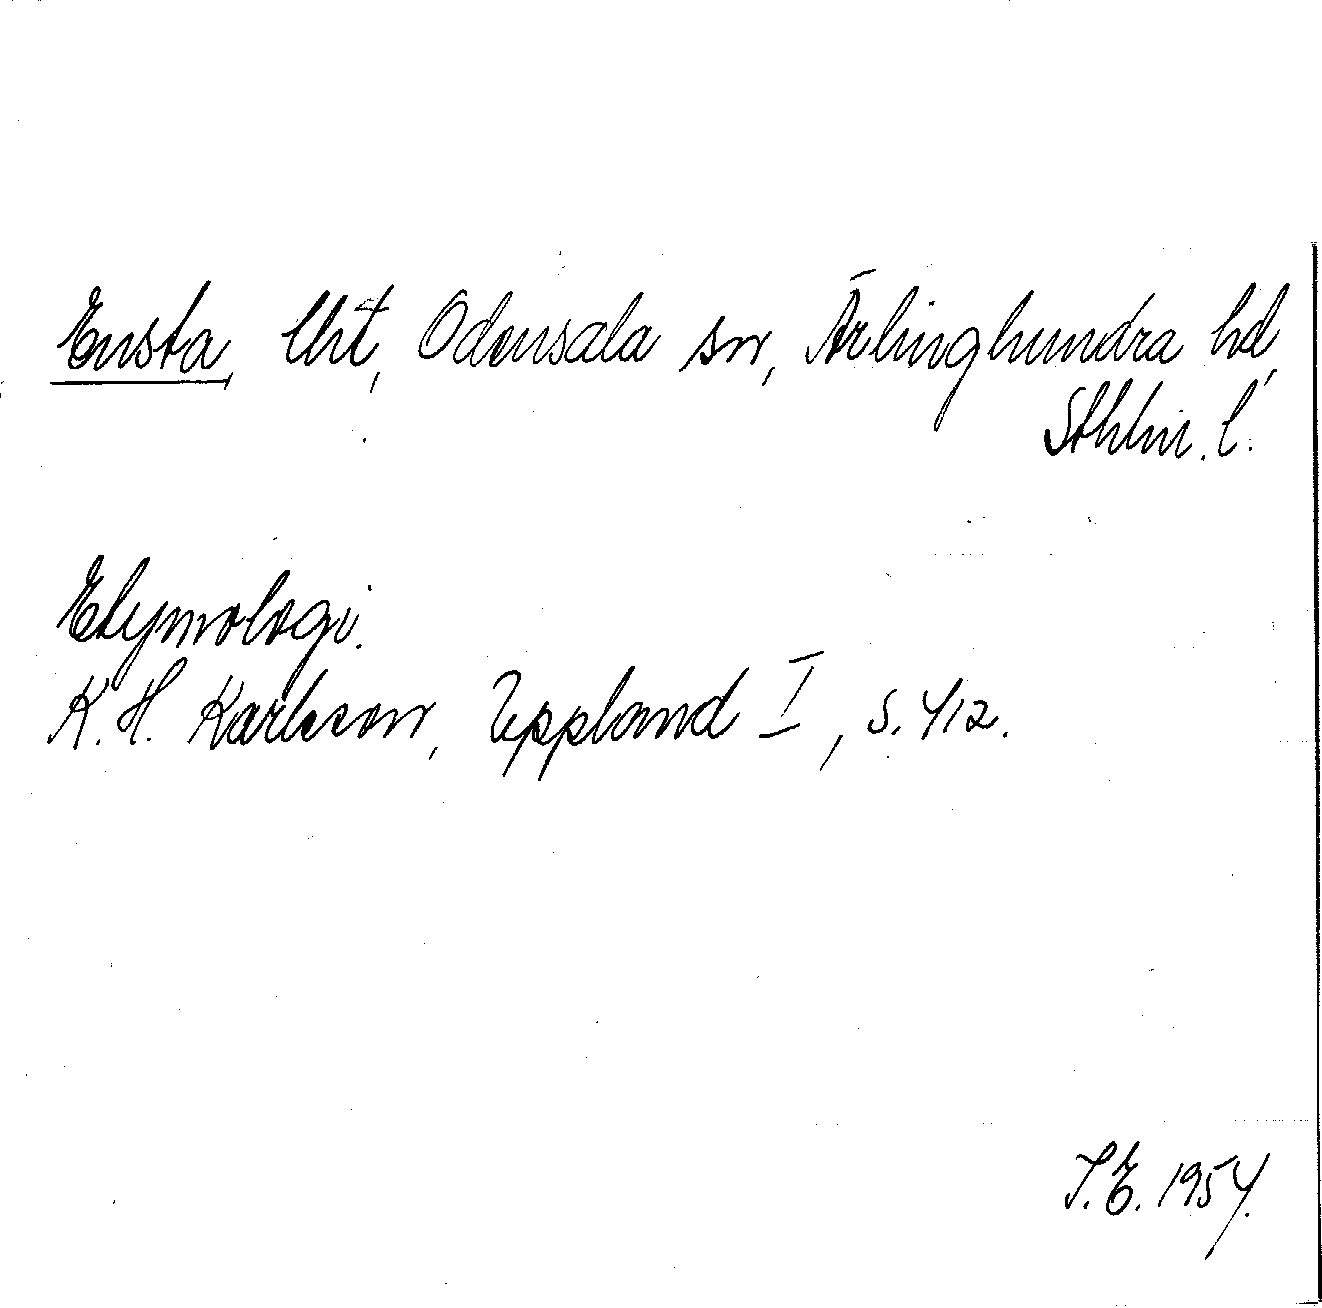 Ensta, Uht, Odensala sn, Ärlinghundra hd,
Sthlm. l.
Etymologi.
K. H. Karlsson, Uppland I, s. 412.
S. E. 1954.